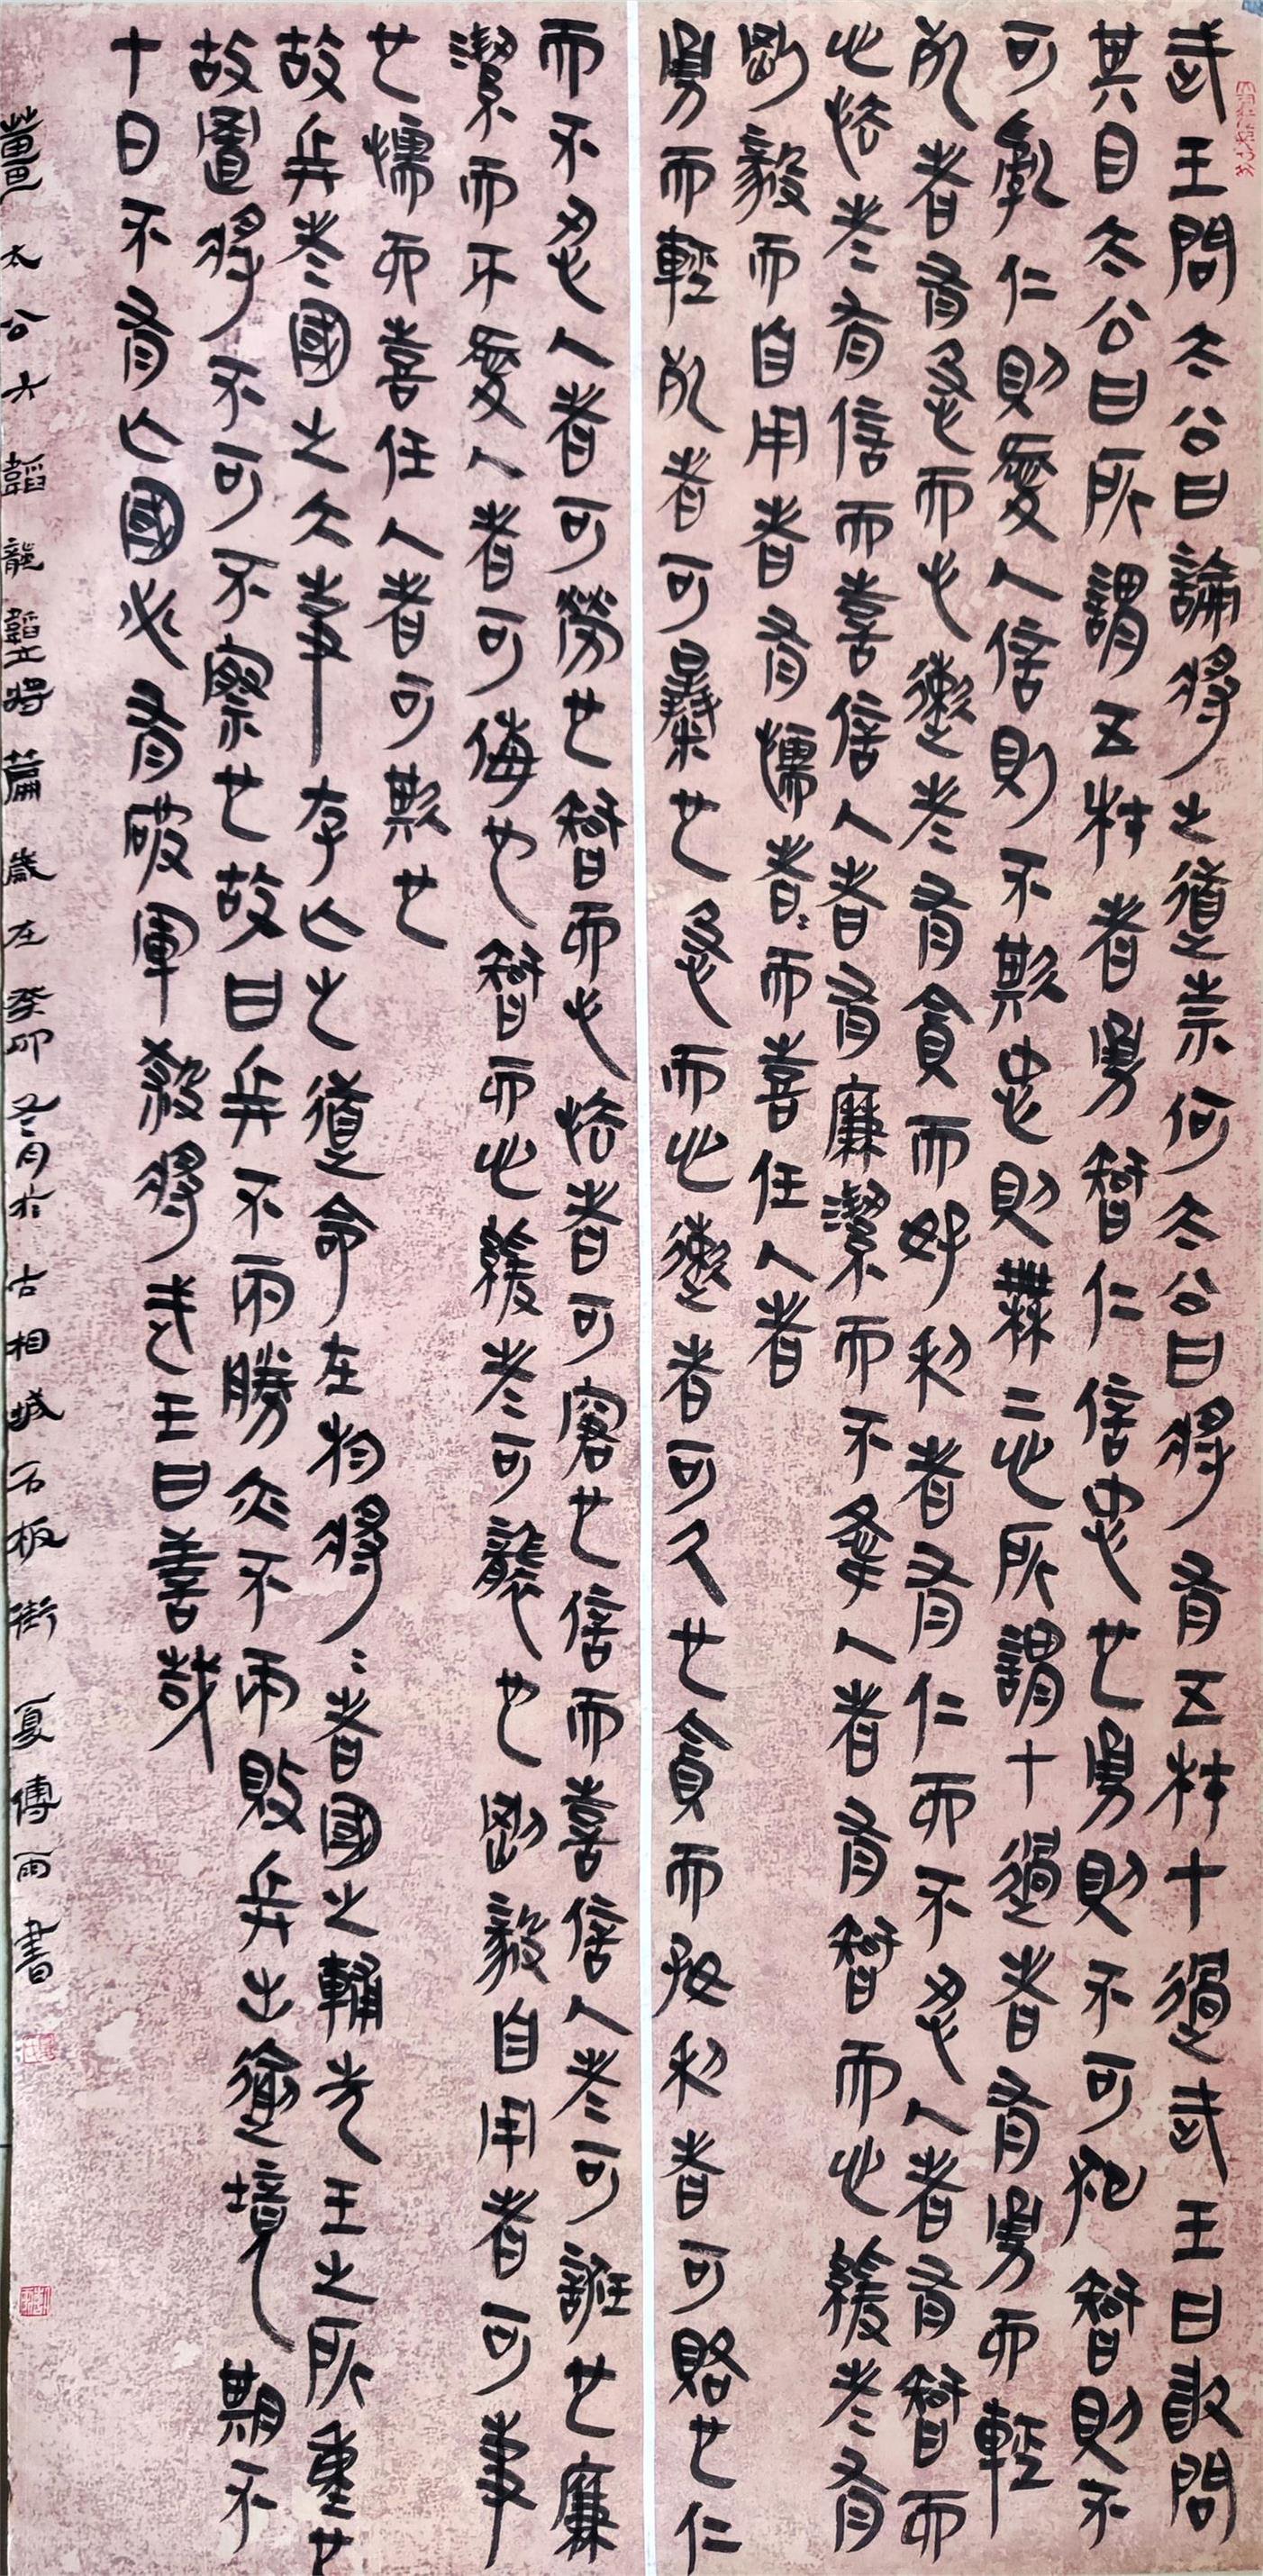 武王問太公曰論將之道柰何太公曰將有五材十過武王曰敢問
其目太公曰所謂五材者勇智仁信忠也勇則不可犯智則不
可亂仁則愛人信則不欺忠則無二心所謂十過者有勇而輕
死者有急而心速者有貪而好利者有仁而不忍人者有智而
心怯者有信而喜信人者有廉潔而不愛人者有智而心緩者有
剛毅而自用者有懦者者而喜任人者
勇而輕死者可暴也急而心速者可久也貪而好利者可賂也仁
而不忍人者可勞也智而心怯者可窘也信而喜信人者可誑也廉
潔而不愛人者可侮也智而心緩者可襲也剛毅自用者可事
也懦而喜任人者可欺也
故兵者國之大事存亡之道命在於將將者國之輔先王之所重也
故置將不可不察也故曰兵不兩勝亦不兩敗兵出逾境期不
十日不有亡國必有破軍殺將武王曰善哉
薑太公六韜龍韜立將篇歲在癸卯冬月於古相城石板街夏傳雨書